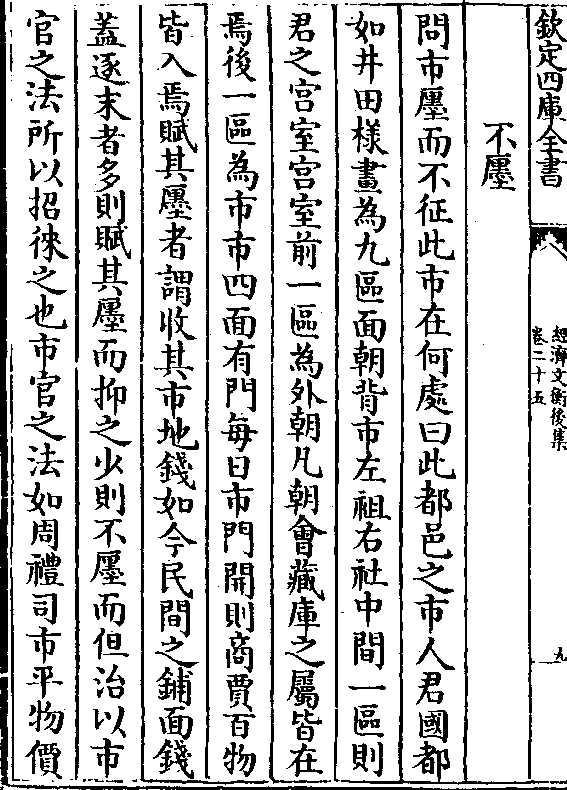 欽定四庫全書
經濟文衡後集
卷二十五
九
不廛
問市廛而不征此市在何處曰此都邑之市人君國都
如井田様畫為九區面朝背市左祖右社中間一區則
君之宫室宫室前一區為外朝凡朝會藏庫之屬皆在
焉後一區為市市四面有門每日市門開則商賈百物
皆入焉賦其廛者謂收其市地錢如今民間之鋪面錢
葢逐末者多則賦其廛而抑之少則不廛而但治以市
官之法所以招徠之也市官之法如周禮司市平物價